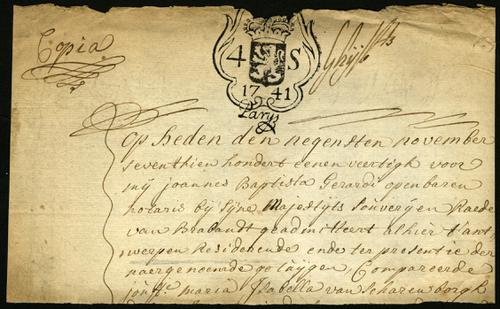 Copia
4 S
17 41
Op heden den negensten november
seventhien hondert eenen veertigh voor
mij joannes Baptista Gerardi openbaren
notaris bij sijne Majestijts Souverijen Raede
van Brabandt geadmitteert alhier t'ant
werpen Residerende ende ter presentie der
naergenoemde getuijgen Compareerde
maria Isabella van Scharenborgh